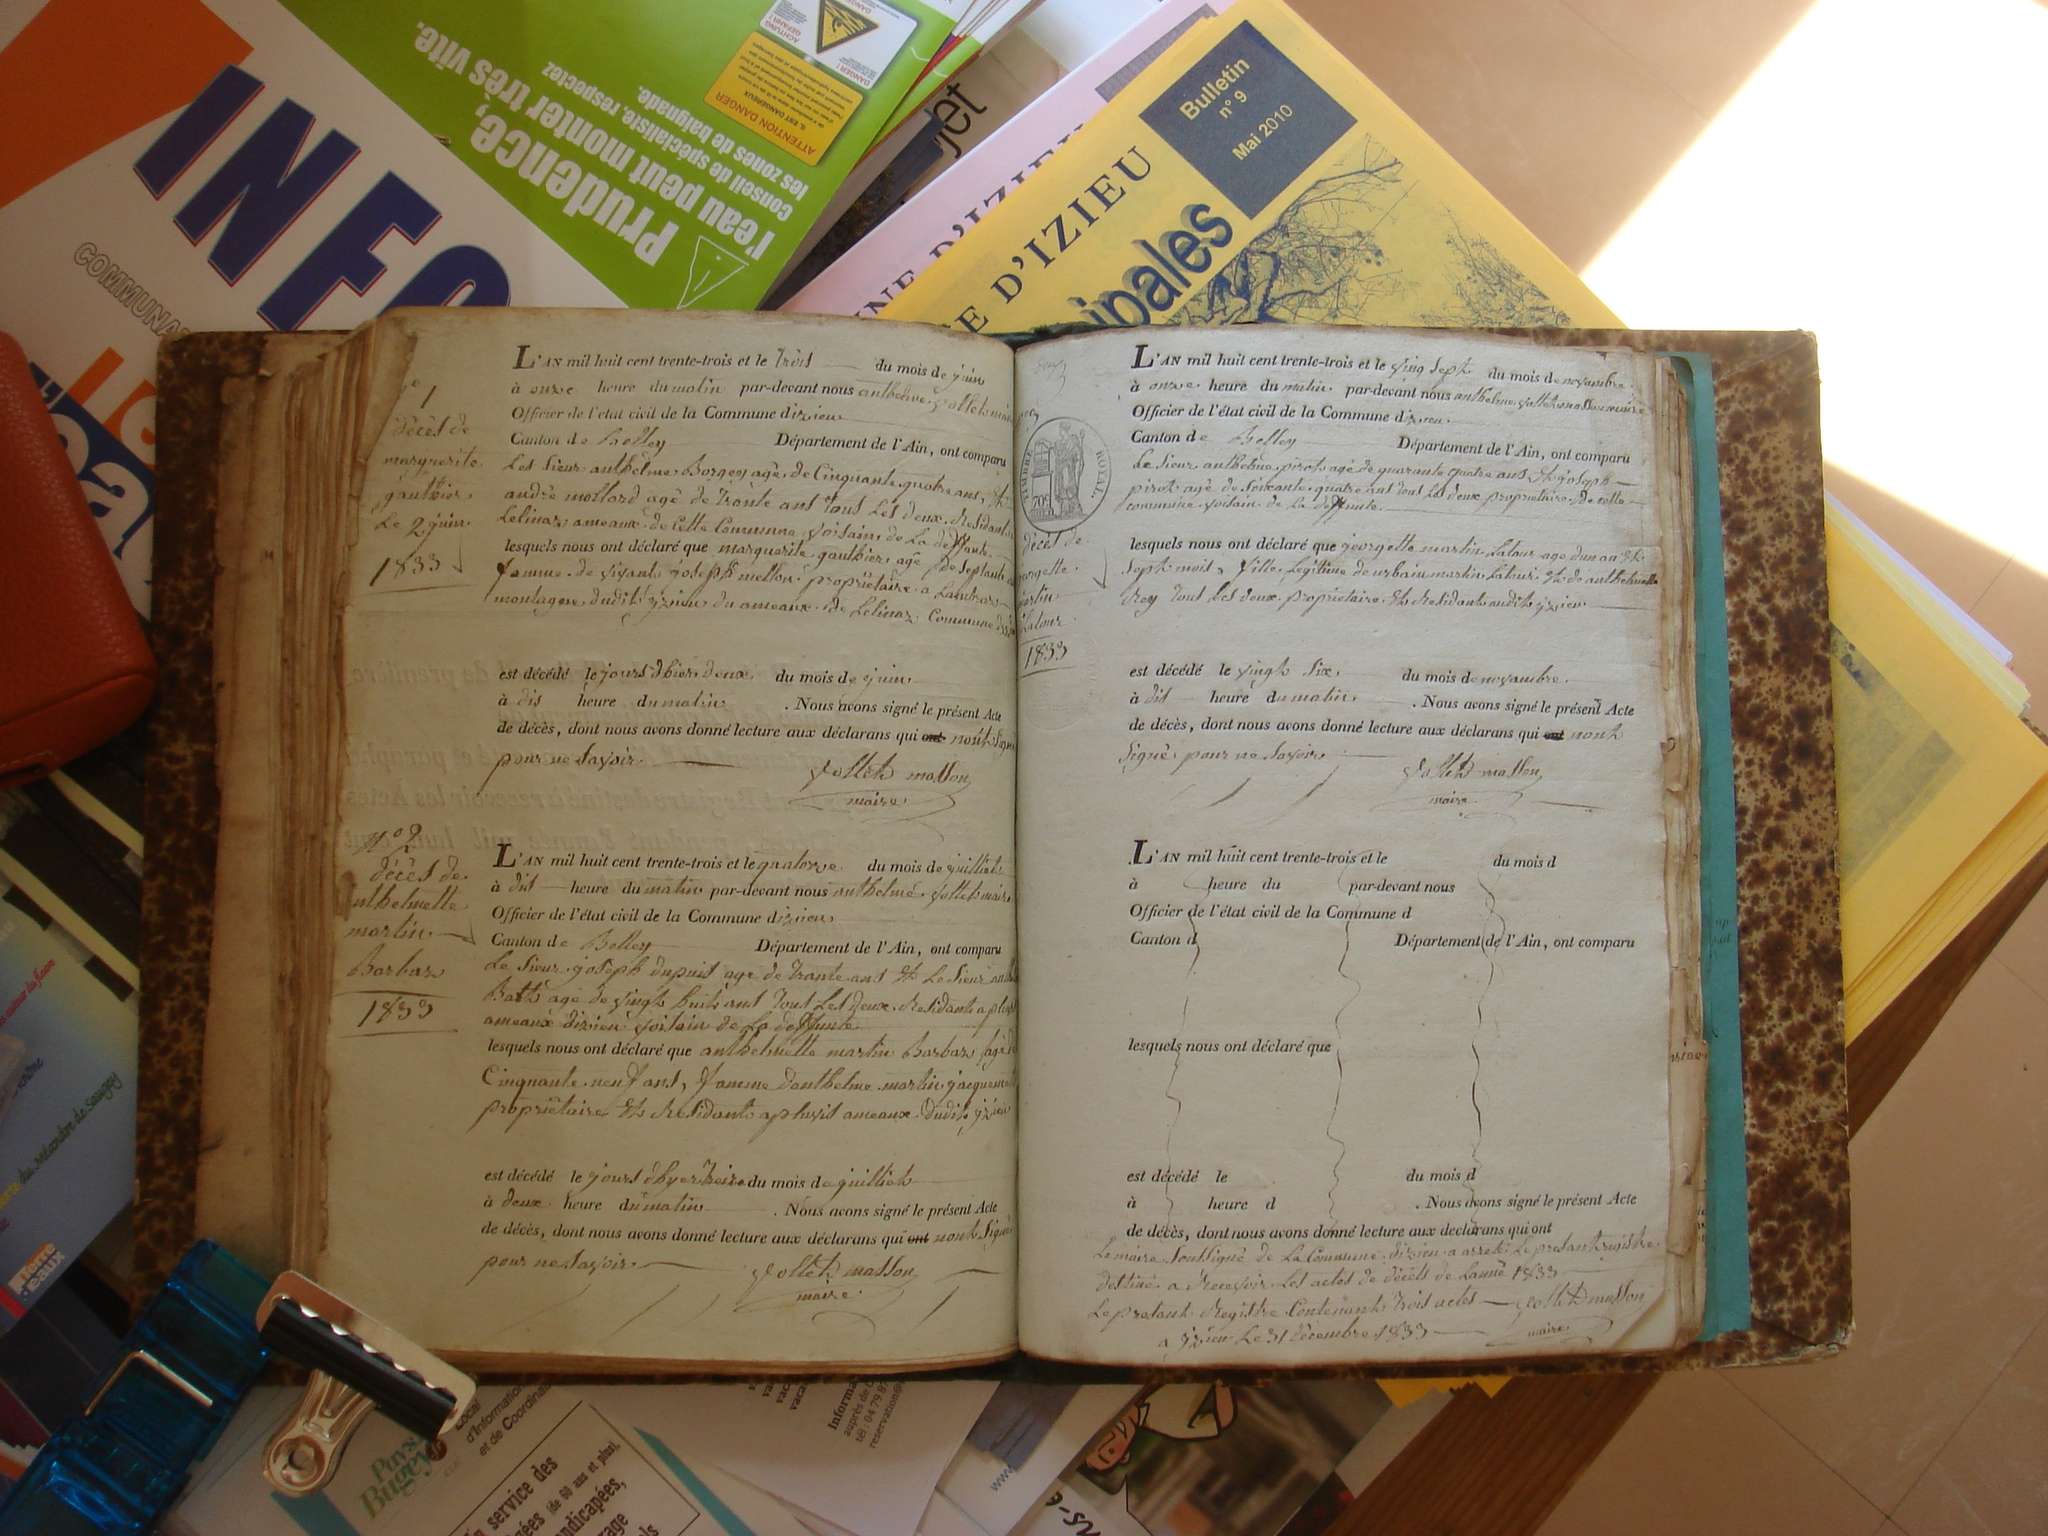 INFO
COMMUNA
Prudence,
l'eau peut monter très vite.
conseil de spécialiste, respectez
les zones de baignade.
ATTENTION DANGER
Bulletin
n° 9
Mai 2010
NE D'IZIEU
E D'IZIEU
ipales
jet
1
décès de
marguerite
gauthier
Le 2 juin
1833
L'AN mil huit cent trente-trois et le trois du mois de juin
à onze heure du matin par-devant nous anthelme vollet mai
Officier de l'état civil de la Commune dizieu
Canton de Belley Département de l'Ain, ont comparu
Les sieur anthelme Borgey agé de Cinquante quatre ans, &
andré mollard agé de trante ans tous les deux Residant
Lelinaz ameaux de cette Commune voisain de la deffunte
lesquels nous ont déclaré que marguerite gauthier agé de septante
famme de vivant joseph mellon propriétaire a
montagne dudit yzieu du ameaux de Lelinaz Commune
est décédé le jours dhier deux du mois de juin
à dis heure du matin . Nous avons signé le présent Acte
de décès, dont nous avons donné lecture aux déclarans qui ont nont signé
pour ne savoir
vollet masson
maire
N° 2
décès de
nthelmette
martin
Barbaz
1833
L'AN mil huit cent trente-trois et le quatorze du mois de juilliet
à dis heure du matin par-devant nous anthelme vollet maire
Officier de l'état civil de la Commune dizieu
Canton de Belley Département de l'Ain, ont comparu
Le sieur joseph dupuit agé de trante ans & le sieur
agé de vingt huit ans tout les deux Residant a
ameaux dizieu voisain de la deffunte
lesquels nous ont déclaré que anthelmette martin Barbaz agé
Cinquante neuf ans, famme danthelme martin jacquemet
propriètaire & Residant a pluvis ameaux dudit yzieu
est décédé le jours dhyer treize du mois de juilliet
à deux heure du matin . Nous avons signé le présent Acte
de décès, dont nous avons donné lecture aux déclarans qui ont nont signé
pour ne savoir
vollet masson
maire
TIMBRE ROYAL
décès de
orgette
artin
Latour
1833
L'AN mil huit cent trente-trois et le ving sept du mois de novambre
à onze heure du matin par-devant nous anthelme vollet masson maire
Officier de l'état civil de la Commune dizieu
Canton de Belley Département de l'Ain, ont comparu
Le sieur anthelme pirot agé de quarante quatre ans & joseph
pirot agé de soixante quatre ant tout les deux propriètaire de cette
commune voisain de la deffunte
lesquels nous ont déclaré que georgette martin Latour age dun an &
sept mois, fille legitime de urbain martin Latour & de anthelmette
Rey tout les deux propriètaire & Residant audit yzieu
est décédé le vingt six du mois de novambre
à dis heure du matin . Nous avons signé le présent Acte
de décès, dont nous avons donné lecture aux déclarans qui ont nont
signé pour ne savoir
vollet masson
maire
L'AN mil huit cent trente-trois et le du mois d
à heure du par-devant nous
Officier de l'état civil de la Commune d
Canton d Département de l'Ain, ont comparu
lesquels nous ont déclaré que
est décédé le du mois d
à heure d . Nous avons signé le présent Acte
de décès, dont nous avons donné lecture aux déclarans qui ont
Le maire soussigné de la Commune dizieu a arreté le presant registre
destiné a Recevoir les actes de décès de Lanné 1833
Le presant Registre Contenant trois actes vollet masson
a yzieu le 31 décembre 1833 maire
Local
d'Information
et de Coordinat
Pays
Bugey
service des
(de 60 ans et plus),
andicapées,
Informa
auprès de
tél : 04 79 87
reservation@